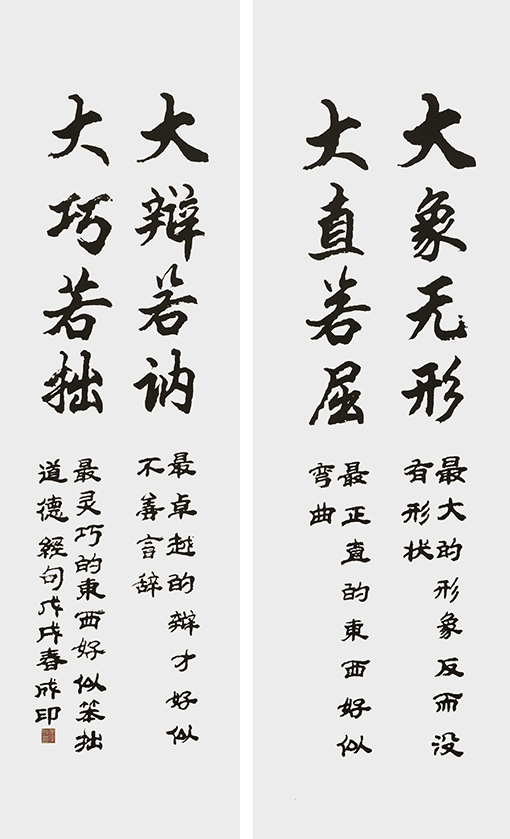 大象无形
最大的形象反而没
有形状
大直若屈
最正直的東西好似
弯曲
大辩若讷
最卓越的辩才好似
不善言辞
大巧若拙
最灵巧的東西好似笨拙
道德經句戊戌春成印